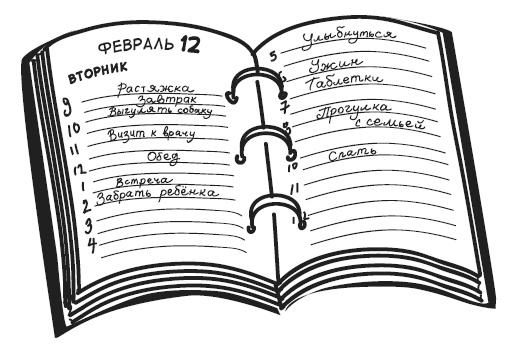 ФЕВРАЛЬ 12
ВТОРНИК
9 Растяжка
Завтрак
Выгулять собаку
10
Визит к врачу
11
Обед
12
1 Встреча
2 Забрать ребёнка
3
4
5 Улыбнуться
6 Ужин
Таблетки
7
Прогулка
8 с семьей
Спать
10
11
12